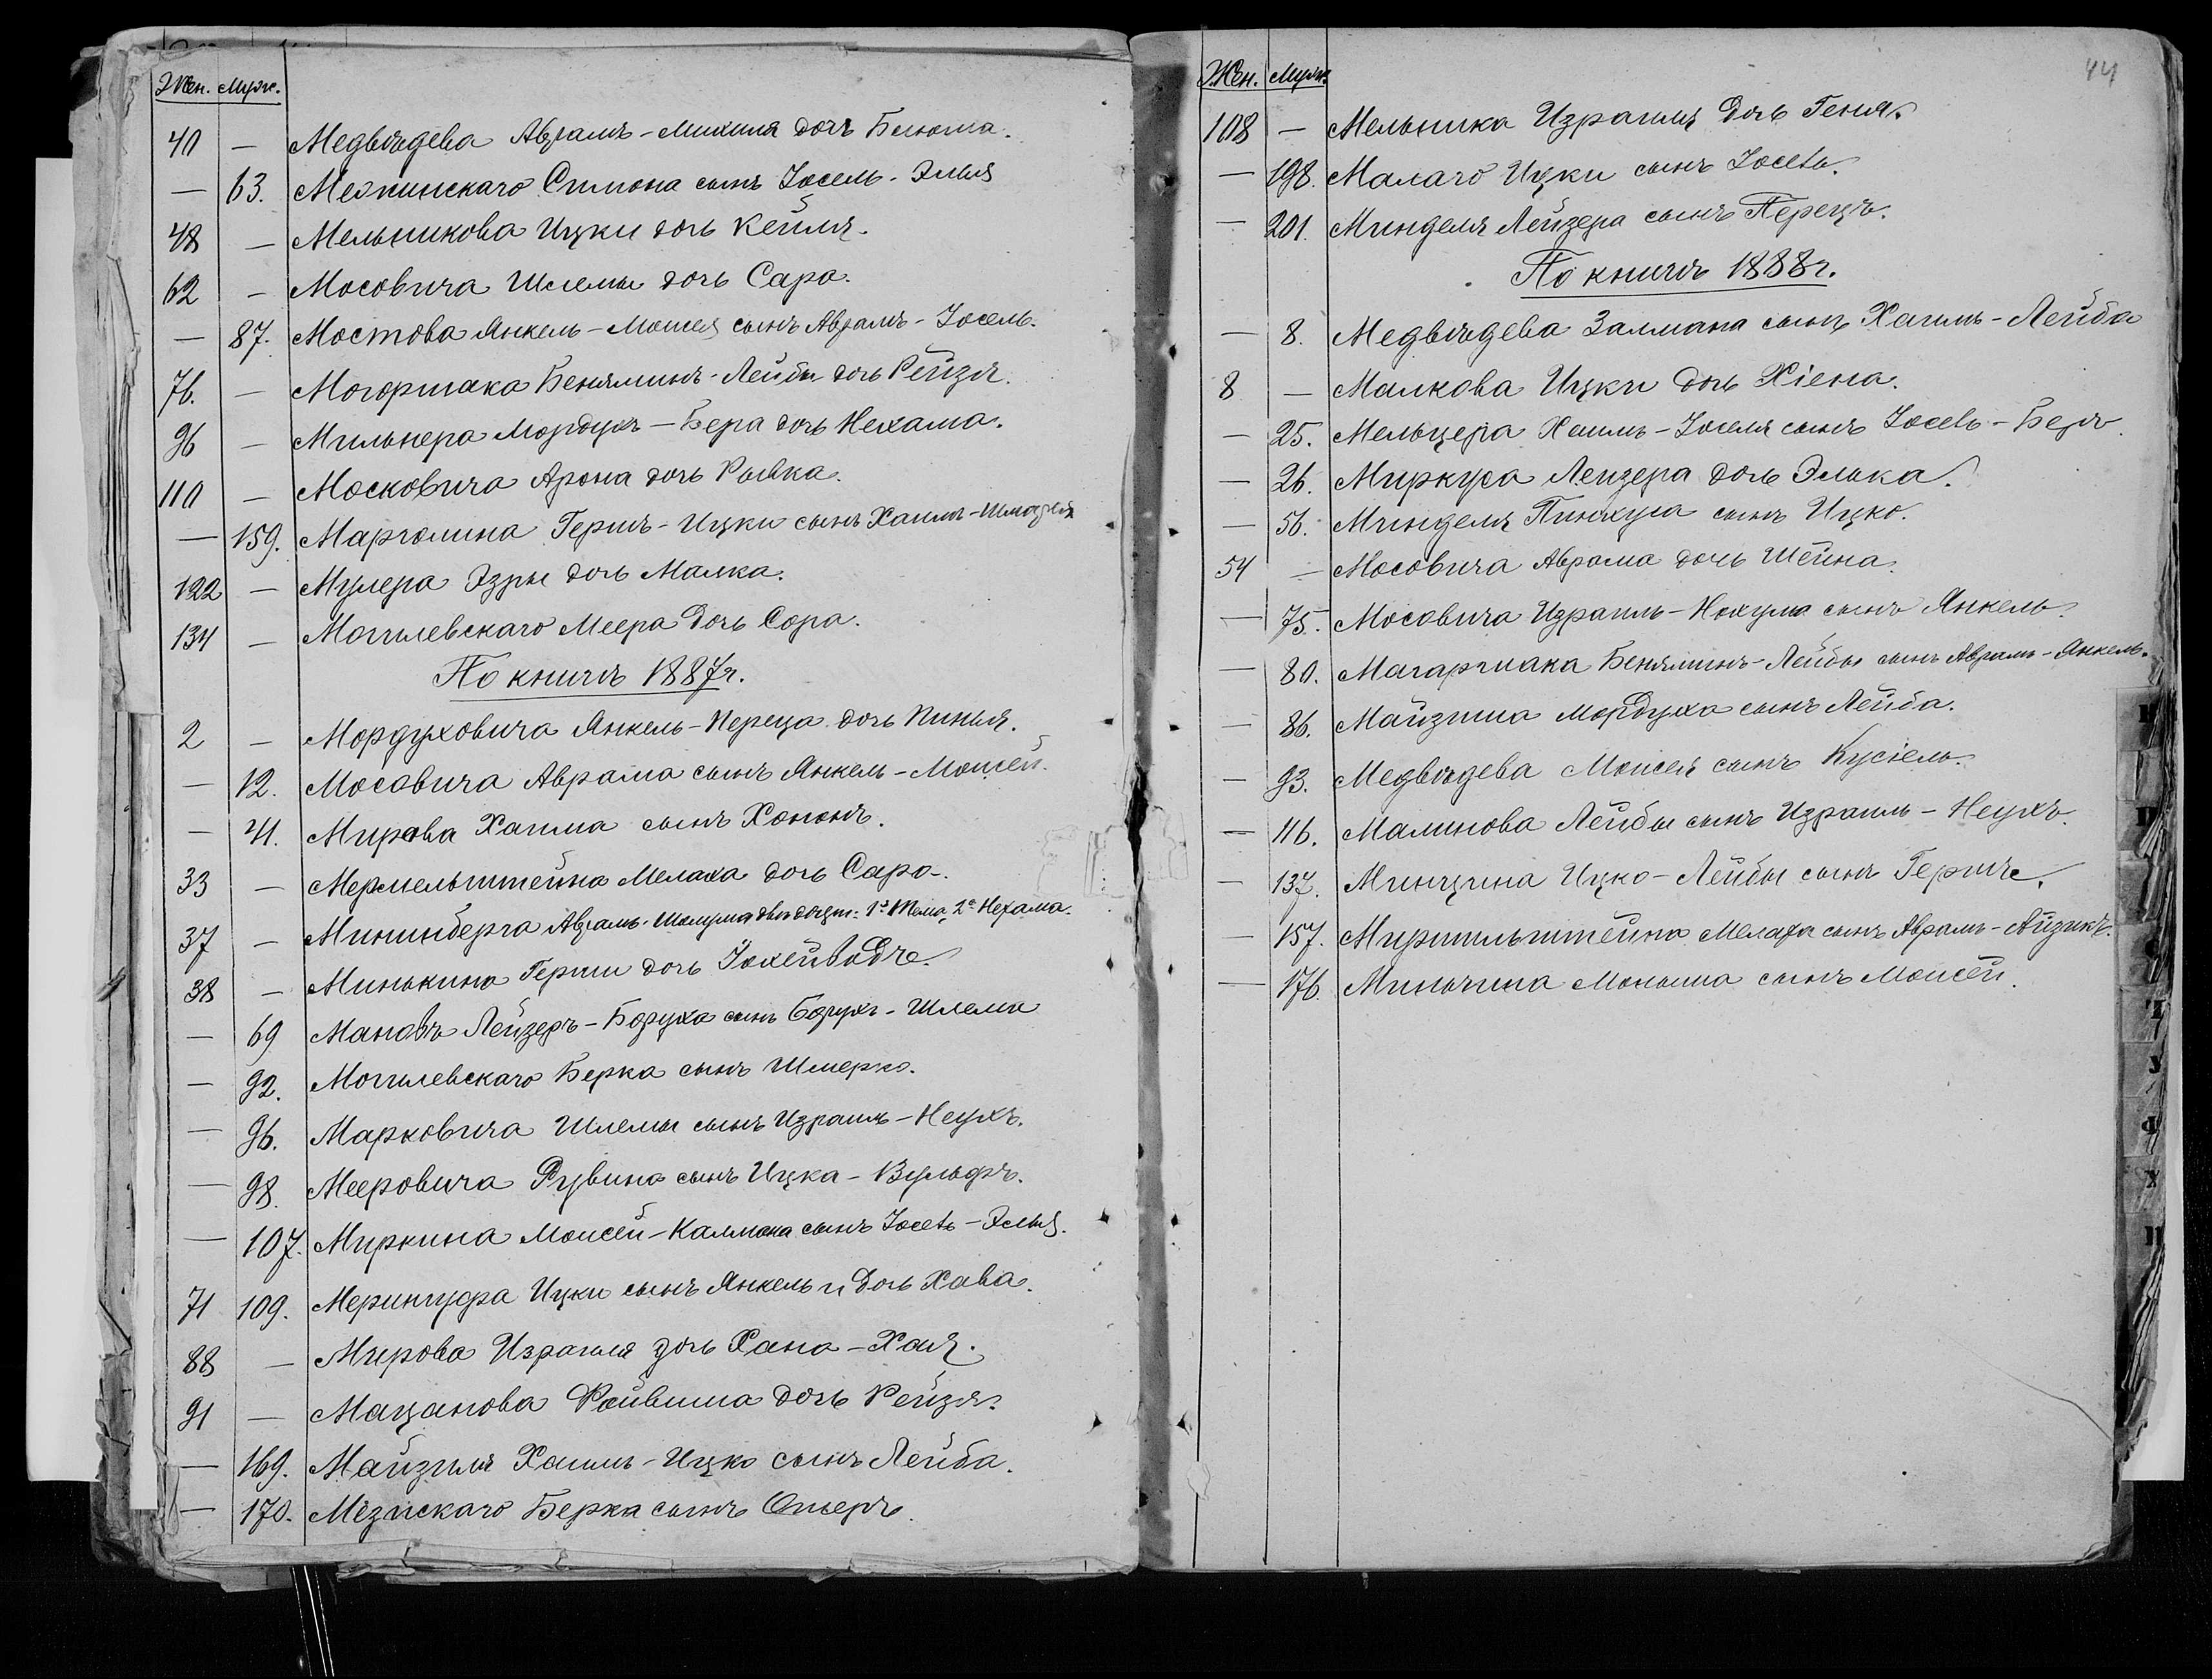 Жен. Муж.
40 — Медвѣдева Абрамъ-Михеля дочь Блюма.
— 63. Мехпинскаго Симона сынъ Іосель-Элья
48 — Мельникова Ицки дочь Кейля.
62 — Мосовича Шлемы дочь Сара.
— 87. Мостова Янкель-Моисея сынъ Абрамъ-Іосель.
76. — Могоршака Беняминъ-Лейбы дочь Рейзя.
96 — Мильнера Мордухъ-Бера дочь Нехама.
110 — Московича Арона дочь Рывка.
— 159. Марголина Гершъ-Ицки сынъ Хаимъ-Шмарья
122 — Мулера Эзры дочь Малка.
134 — Могилевскаго Меера дочь Сора.
По книгѣ 1887г.
2 — Мордуховича Янкель-Переца дочь Пинья.
— 12. Мосавича Аврама сынъ Янкель-Моисей.
— 41. Мирова Хаима сынъ Хононъ.
33 — Мермельштейна Мелаха дочь Сара.
37 — Мининберга Абрамъ-Шолума двѣ дочери: 1ª Тема, 2ª Нехама.
38 — Минькина Герши дочь Іохейводче.
— 69 Мановъ Лейзеръ-Боруха сынъ Борухъ-Шлема
— 92. Могилевскаго Берка сынъ Шмерко.
— 96. Марковича Шлемы сынъ Израиль-Неухъ.
— 98. Мееровича Рувина сынъ Ицка-Вульфъ.
— 107. Миркина Моисей-Калмана сынъ Іосеlь-Элья.
71 109. Мерингуфа Ицки сынъ Янкель и дочь Хава.
88 — Мирова Израиля дочь Хана-Хая.
91 — Мацанова Фейвиша дочь Рейзя.
— 169. Майзиля Хаимъ-Ицко сынъ Лейба.
— 170. Мезискаго Берка сынъ Ошеръ.
44
Жен. Муж.
108 — Мельника Израиля дочь Геня.
— 198. Малаго Ицки сынъ Іосеlь.
— 201. Минделя Лейзера сынъ Перецъ.
По книгѣ 1888г.
— 8. Медвѣдева Залмана сынъ Хаимъ-Лейба
8 — Малкова Ицки дочь Хіена.
— 25. Мельцера Хаимъ-Іоселя сынъ Іосеlь-Беръ.
— 26. Миркуса Лейзера дочь Элька.
— 56. Минделя Пинхуса сынъ Ицко.
54 — Мосовича Аврама дочь Шейна.
— 75. Мосавича Израиль-Нохума сынъ Янкель.
— 80. Магаршака Беняминъ-Лейбы сынъ Абрамъ-Янкель.
— 86. Майзиша Мордуха сынъ Лейба.
— 93. Медвѣдева Моисея сынъ Кусіель.
— 116. Малинова Лейбы сынъ Израиль-Неухъ.
— 137. Минцина Ицко-Лейбы сынъ Гершъ.
— 157. Мирмильштейна Мелаха сынъ Абрамъ-Айзикъ.
— 176. Миньчина Моныша сынъ Моисей.
И
П
С
Т
У
Ф
Х
Ц